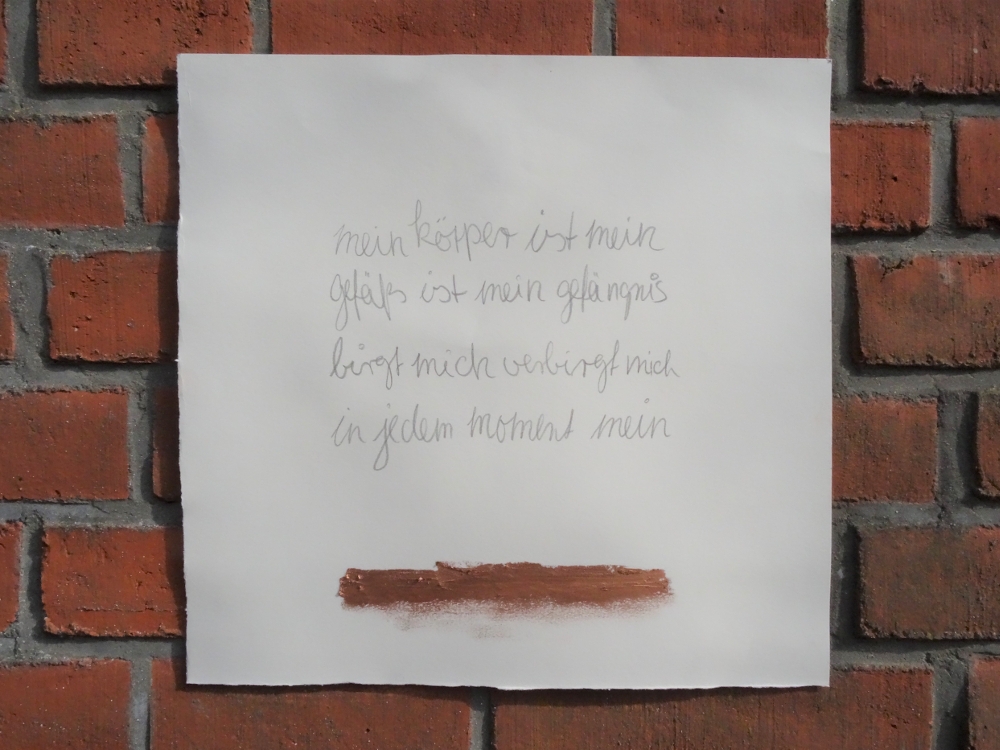 mein körper ist mein
gefäß ist mein gefängnis
birgt mich verbirgt mich
in jedem moment mein